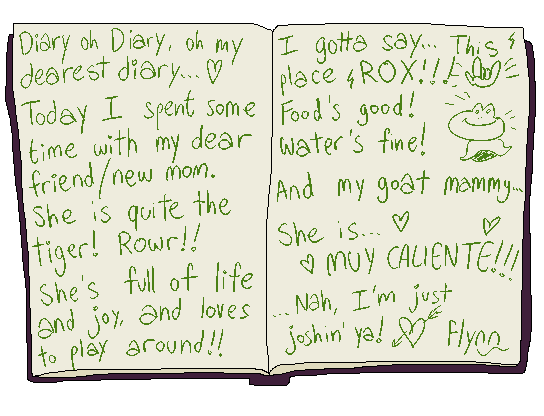 Diary oh Diary, oh my
dearest diary...
Today I spent some
time with my dear
friend/new mom.
She is quite the
tiger! Rowr!!
She's full of life
and joy, and loves
to play around!!
I gotta say... This
place ROX!!!
Food's good!
Water's fine!
And my goat mammy...
She is...
MUY CALIENTE!!!
...Nah, I'm just
joshin' ya! Flynn